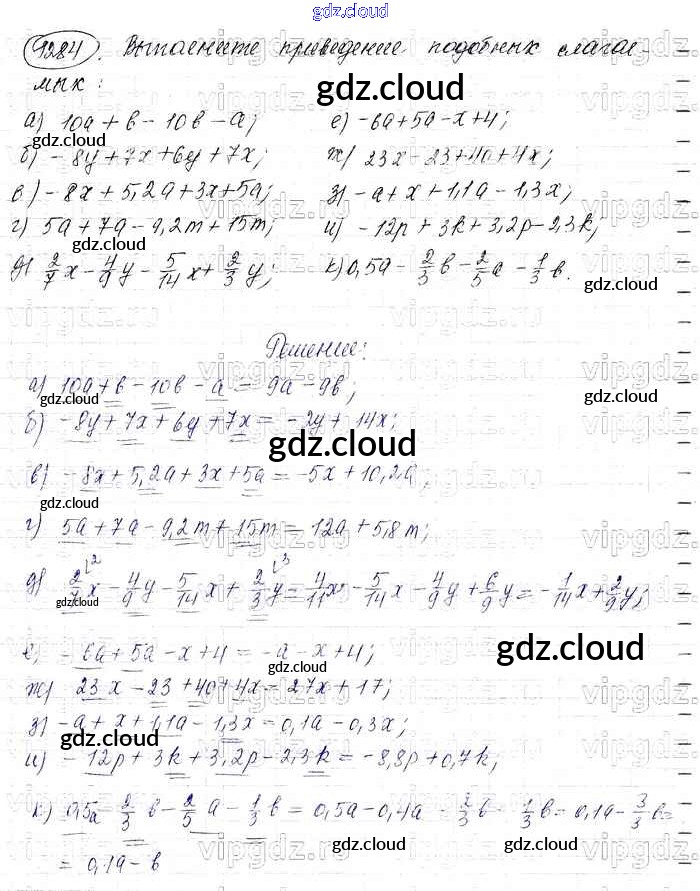 gdz.cloud
1284. Выполните приведение подобных слагае-
мых:
gdz.cloud
а) 10a + b - 10b - a; е) -6a + 5a - x + 4;
gdz.cloud
б) -8y + 7x + 6y + 7x; ж) 23x - 23 + 40 + 4x;
в) -8x + 5,2a + 3x + 5a; з) -a + x + 1,1a - 1,3x;
г) 5a + 7a - 9,2m + 15m; и) -12p + 3k + 3,2p - 2,3k;
gdz.cloud
д) 2/7 x - 4/9 y - 5/14 x + 2/3 y; к) 0,5a - 2/3 b - 2/5 a - 1/3 b.
gdz.cloud
Решение:
а) 10a + b - 10b - a = 9a - 9b;
gdz.cloud gdz.cloud
б) -8y + 7x + 6y + 7x = -2y + 14x;
gdz.cloud
в) -8x + 5,2a + 3x + 5a = -5x + 10,2a;
gdz.cloud
г) 5a + 7a - 9,2m + 15m = 12a + 5,8m;
д) 2/7 x - 4/9 y - 5/14 x + 2/3 y = 4/11 x - 5/14 x - 4/9 y + 6/9 y = -1/14 x + 2/9 y;
gdz.cloud
е) -6a + 5a - x + 4 = -a - x + 4;
gdz.cloud gdz.cloud
ж) 23x - 23 + 40 + 4x = 27x + 17;
з) -a + x + 1,1a - 1,3x = 0,1a - 0,3x;
gdz.cloud
и) -12p + 3k + 3,2p - 2,3k = -8,8p + 0,7k;
к) 0,5a - 2/3 b - 2/5 a - 1/3 b = 0,5a - 0,4a - 2/3 b - 1/3 b = 0,1a - 3/3 b =
gdz.cloud gdz.cloud
= 0,1a - b